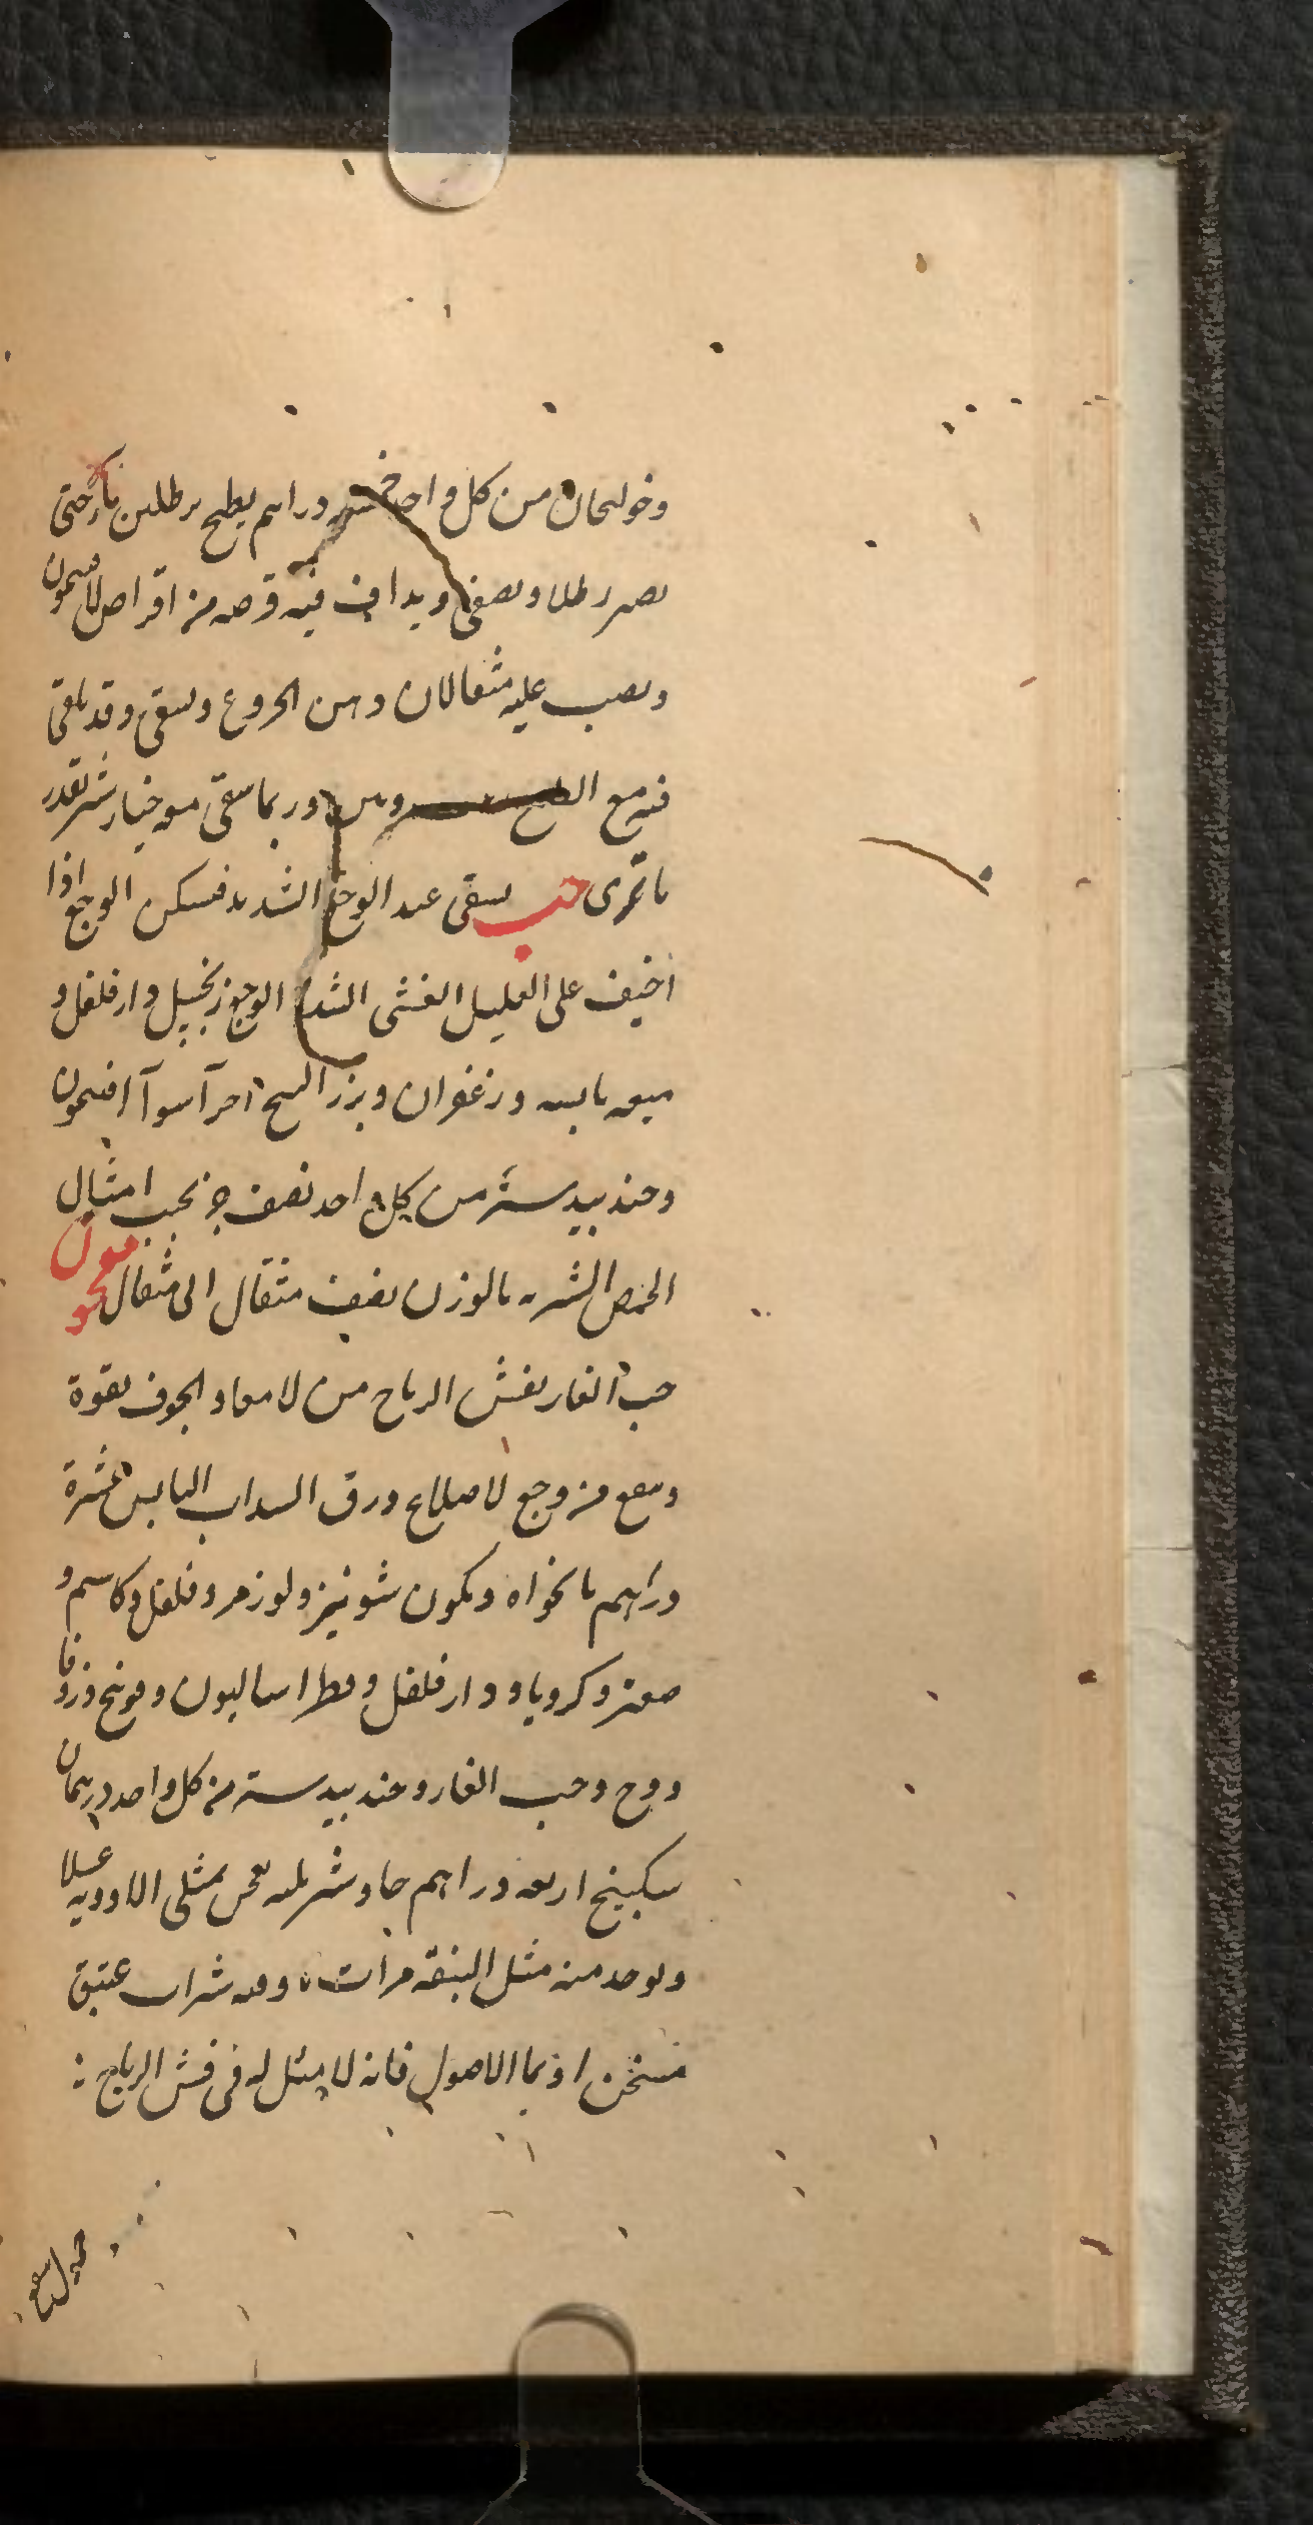 وخولنجان من كل واحد خمسة دراهم يطبخ برطلين ماء حتى
يصير رطلا ويصفى ويداف فيه قرصه من اقراص الافتيمون
ويصب عليه مثقالان دهن الخروع ويسقى وقد يلقى
فيه مع الطبخ وربما سقى معه خيارشنبر بقدر
ما ترى حب يسقى عند الوجع الشديد فيسكن الوجع اذا
اخيف على العليل الغشى الوجع زنجبيل ودارفلفل و
ميعه يابسه وزعفران وبزر البنج اجزآ سوآ افتيمون
وجندبيدستر من كل واحد نصف جز يحبب امثال
الحمص الشربه بالوزن نصف مثقال الى مثقال معجون
حب الغار يفش الرياح من لامعاء والجوف بقوة
وينفع من وجع لاضلاع ورق السداب اليابس عشرة
دراهم نانخواه وكمون شونيز ولوز مر وفلفل وكاشم و
صعتر وكرويا ودارفلفل وفطراساليون وفوتنج وزوفا
ووج وحب الغار وجندبيدستر من كل واحد درهمان
سكبينج اربعه دراهم جاوشير ثلثه يعجن بمثلى الادويه عسلا
ويوخذ منه مثل البندقه مرات ومعه شراب عتيق
مسخن او بماء الاصول فانه لا مثل له فى فش الرياح